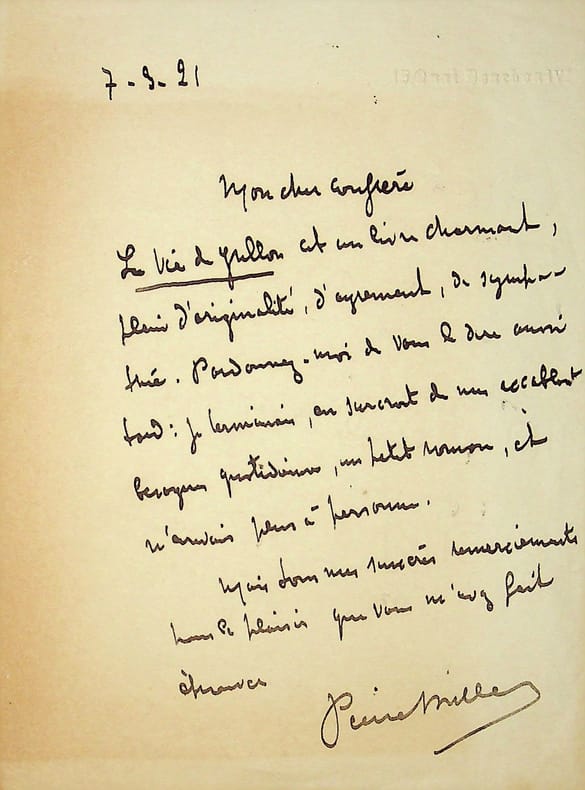 7-3-21
Mon cher confrère
La Vie de Grillon est un livre charmant,
plein d'originalité, d'agrément, de sympa-
thie. Pardonnez-moi de vous le dire aussi
tard : je terminais, en surcroît de mes accablantes
besognes quotidiennes, un petit roman, et
n'arrivais plus à personne.
Mais tous mes sincères remerciements
pour le plaisir que vous m'avez fait
éprouver
Pierre Mille